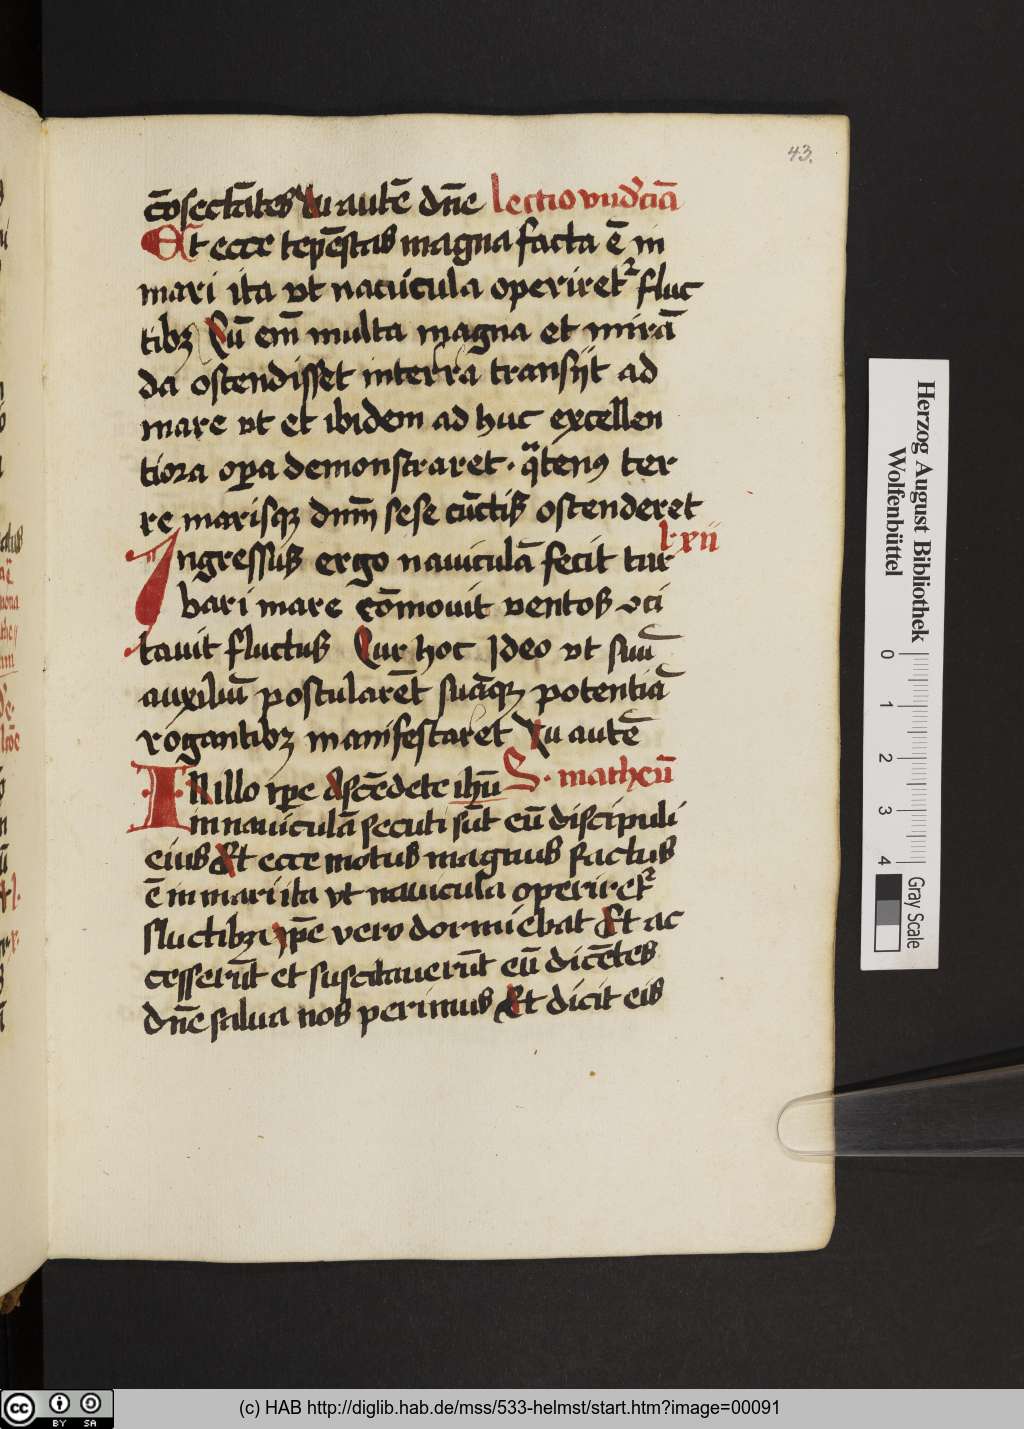 43.
cōsectātes Tu autē dn̄e lectio undēciā
Et ecce tēpestas magna facta ē in
mari ita vt nauicula operiret᷑ fluc
tibꝫ Cū em̄ multa magna et mirā
da ostendisset in terra transijt ad
mare vt et ibidem ad huc excellen
tiora oꝑa demonstraret · qͣtenꝰ ter
re marisqꝫ dnm̄ sese cūctis ostenderet
lxii
Ingressus ergo nauiculā fecit tur
bari mare cōmouit ventos ꝯci
tauit fluctus Cur hoc Ideo vt suū
auxiliū postularēt suāqꝫ potentiā
rogantibꝫ manifestaret Tu autē
IN illo tꝑe Ascēdēte ihū S. matheū
in nauiculā secuti sūt eū discipuli
eius Et ecce motus magnus factus
ē in mari ita vt nauicula operiret᷑
fluctibꝫ ip̄e vero dormiebat Et ac
cesserūt et suscitauerūt eū dicētes
dn̄e salua nos perimus Et dicit eis
Herzog August Bibliothek
Wolfenbüttel
0 1 2 3 4
Gray Scale
cc BY SA
(c) HAB http://diglib.hab.de/mss/533-helmst/start.htm?image=00091